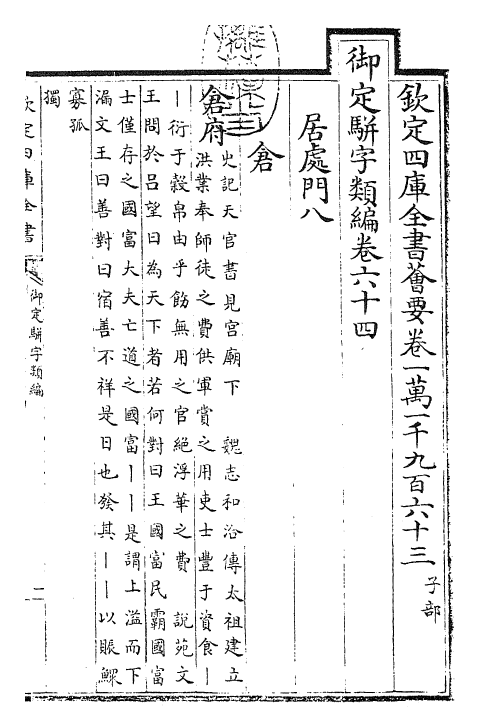 欽定四庫全書薈要卷一萬一千九百六十三 子部
御定駢字類編卷六十四
居處門八
倉
倉府 史記天官書見宮廟下 魏志和洽傳太祖建立
洪業奉師徒之費供軍賞之用吏士豐于資食丨
丨衍于穀帛由乎飭無用之官絕浮華之費 說苑文
王問於呂望曰為天下者若何對曰王國富民霸國富
士僅存之國富大夫亡道之國富丨丨是謂上溢而下
漏文王曰善對曰宿善不祥是日也發其丨丨以賑鰥
寡孤
獨
欽定四庫全書
御定駢字類編